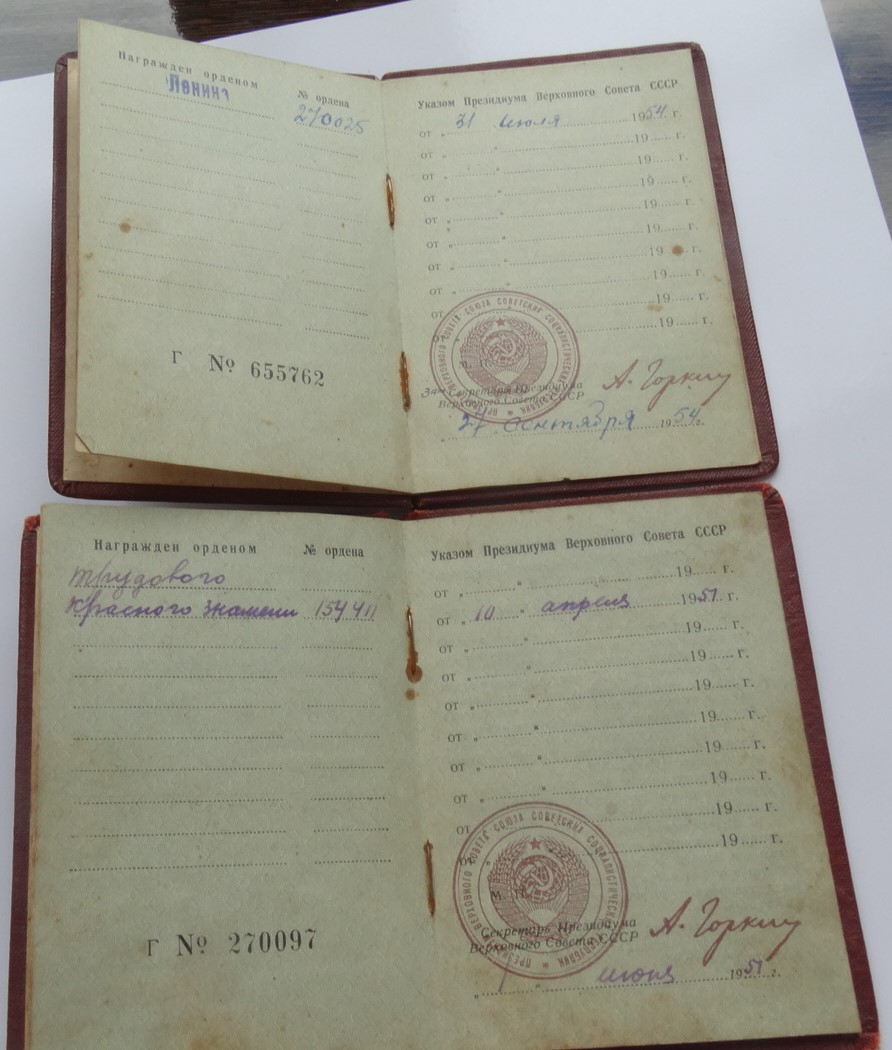 Награжден орденом
№ ордена
Ленина
270025
Г № 655762
Указом Президиума Верховного Совета СССР
от „ 31 " июля 1954 г.
от „ " 19 г.
от „ " 19 г.
от „ " 19 г.
от „ " 19 г.
от „ " 19 г.
от „ " 19 г.
от „ " 19 г.
от „ " 19 г.
от „ " 19 г.
ПРЕЗИДИУМ ВЕРХОВНОГО СОВЕТА СОЮЗА СОВЕТСКИХ СОЦИАЛИСТИЧЕСКИХ РЕСПУБЛИК
М. П.
Зам Секретарь Президиума
Верховного Совета СССР
А. Горкин
„ 27 " сентября 1954 г.
Награжден орденом
№ ордена
Трудового
Красного Знамени 154411
Г № 270097
Указом Президиума Верховного Совета СССР
от „ " 19 г.
от „ 10 " апреля 1951 г.
от „ " 19 г.
от „ " 19 г.
от „ " 19 г.
от „ " 19 г.
от „ " 19 г.
от „ " 19 г.
от „ " 19 г.
от „ " 19 г.
ПРЕЗИДИУМ ВЕРХОВНОГО СОВЕТА СОЮЗА СОВЕТСКИХ СОЦИАЛИСТИЧЕСКИХ РЕСПУБЛИК
М. П.
Секретарь Президиума
Верховного Совета СССР
А. Горкин
„ 1 " июня 1951 г.